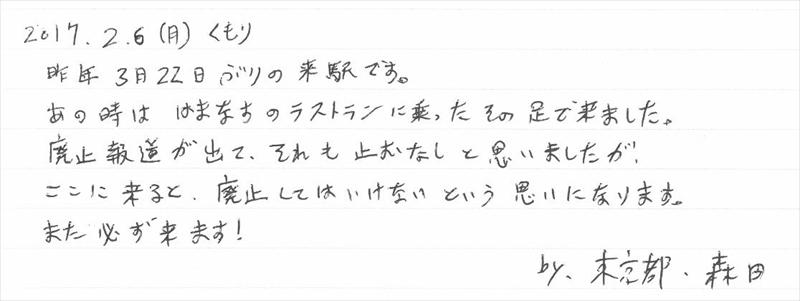 2017.2.6(月)くもり
昨年3月22日ぶりの来駅です。
あの時ははまなすのラストランに乗ったその足で来ました。
廃止報道が出て、それも止むなしと思いましたが、
ここに来ると、廃止してはいけないという思いになります。
また必ず来ます!
by、東京都、森田